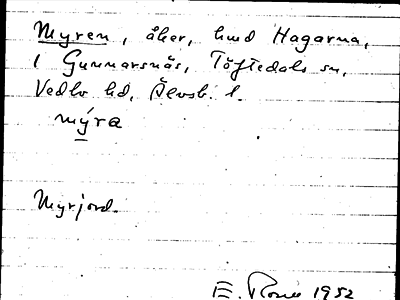 Myren, åker, hmd Hagarna,
i Gunnarsnäs, Töftedals sn,
Vedbo hd, Älvsb. l.
mýra
Myrjord.
E. 1952